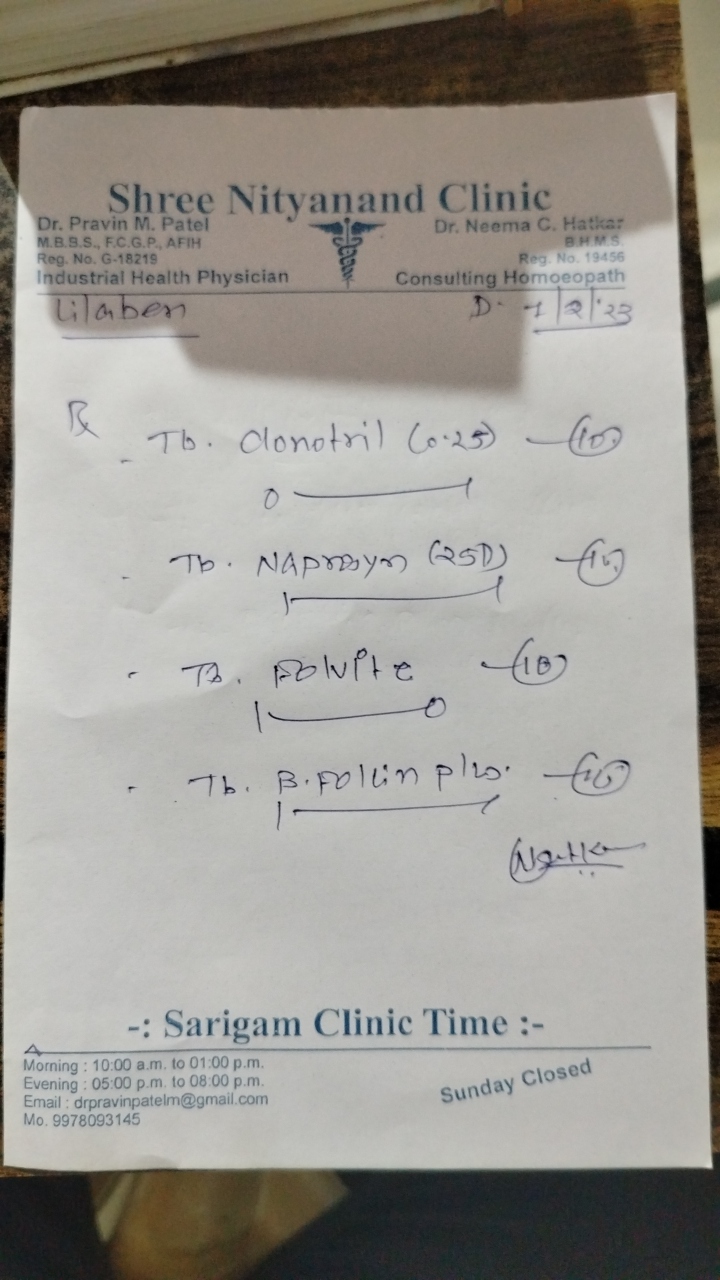 Shree Nityanand Clinic
Dr. Pravin M. Patel
M.B.B.S., F.C.G.P., AFIH
Reg. No. G-18219
Industrial Health Physician
Dr. Neema C. Hatkar
B.H.M.S.
Reg. No. 19456
Consulting Homoeopath
Lilaben D. 1/2/'23
Rx
- Tb. Clonotril (0.25) — (10)
0 — 1
- Tb. Naprosyn (250) — (10)
1 — 1
- Tb. Folvite — (10)
1 — 0
- Tb. B. Folcin plus. — (10)
1 — 1
-: Sarigam Clinic Time :-
Morning : 10:00 a.m. to 01:00 p.m.
Evening : 05:00 p.m. to 08:00 p.m.
Email : drpravinpatelm@gmail.com
Mo. 9978093145
Sunday Closed